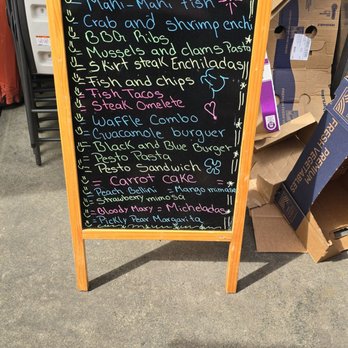 Mahi-Mahi fish
Crab and shrimp ench
BBQ Ribs
Mussels and clams Pasta
Skirt steak Enchiladas
Fish and chips
Fish Tacos
Steak Omelete
Waffle Combo
Guacamole burguer
Black and Blue Burger
Pesto Pasta
Pesto Sandwich
Carrot cake
Peach Bellini = Mango mimosa
Strawberry mimosa
Bloody Mary = Micheladas
Pickly Pear Margarita
PREMIUM